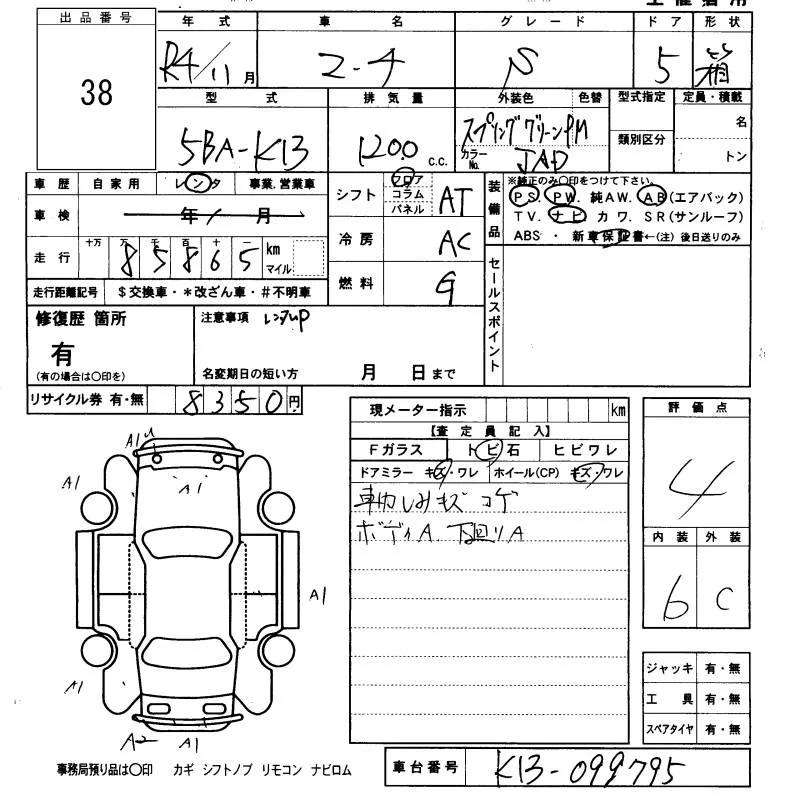 出品番号
38
年式 車名 グレード ドア 形状
R4/11月 マーチ S 5 箱
型式 排気量 外装色 色替 型式指定 定員・積載
5BA-K13 1200 c.c. スプリンググリーンPM 類別区分 名
カラーNo. JAD トン
車歴 自家用 レンタ 事業.営業車
車検 年 月
走行 十万 万 千 百 十 一 km マイル
85865
走行距離記号 $交換車・*改ざん車・#不明車
シフト フロア コラム パネル AT
冷房 AC
燃料 G
装備品
※純正のみ〇印をつけて下さい。
PS. PW. 純AW. AB(エアバック)
TV. ナビ カワ. SR(サンルーフ)
ABS ・ 新車保証書←(注) 後日送りのみ
セールスポイント
修復歴 箇所
有
(有の場合は〇印を)
注意事項 レンタUP
名変期日の短い方 月 日まで
リサイクル券 有・無 8350円
現メーター指示 km
【査定員記入】
Fガラス トビ石 ヒビワレ
ドアミラー キズ・ワレ ホイール(CP) キズ・ワレ
車内しみキズ コゲ
ボディA. 下廻りA
評価点
4
内装 外装
6 C
ジャッキ 有・無
工具 有・無
スペアタイヤ 有・無
A1
A1
A1
A1
A1
A2
A1
事務局預り品は〇印 カギ シフトノブ リモコン ナビロム
車台番号 K13-099795